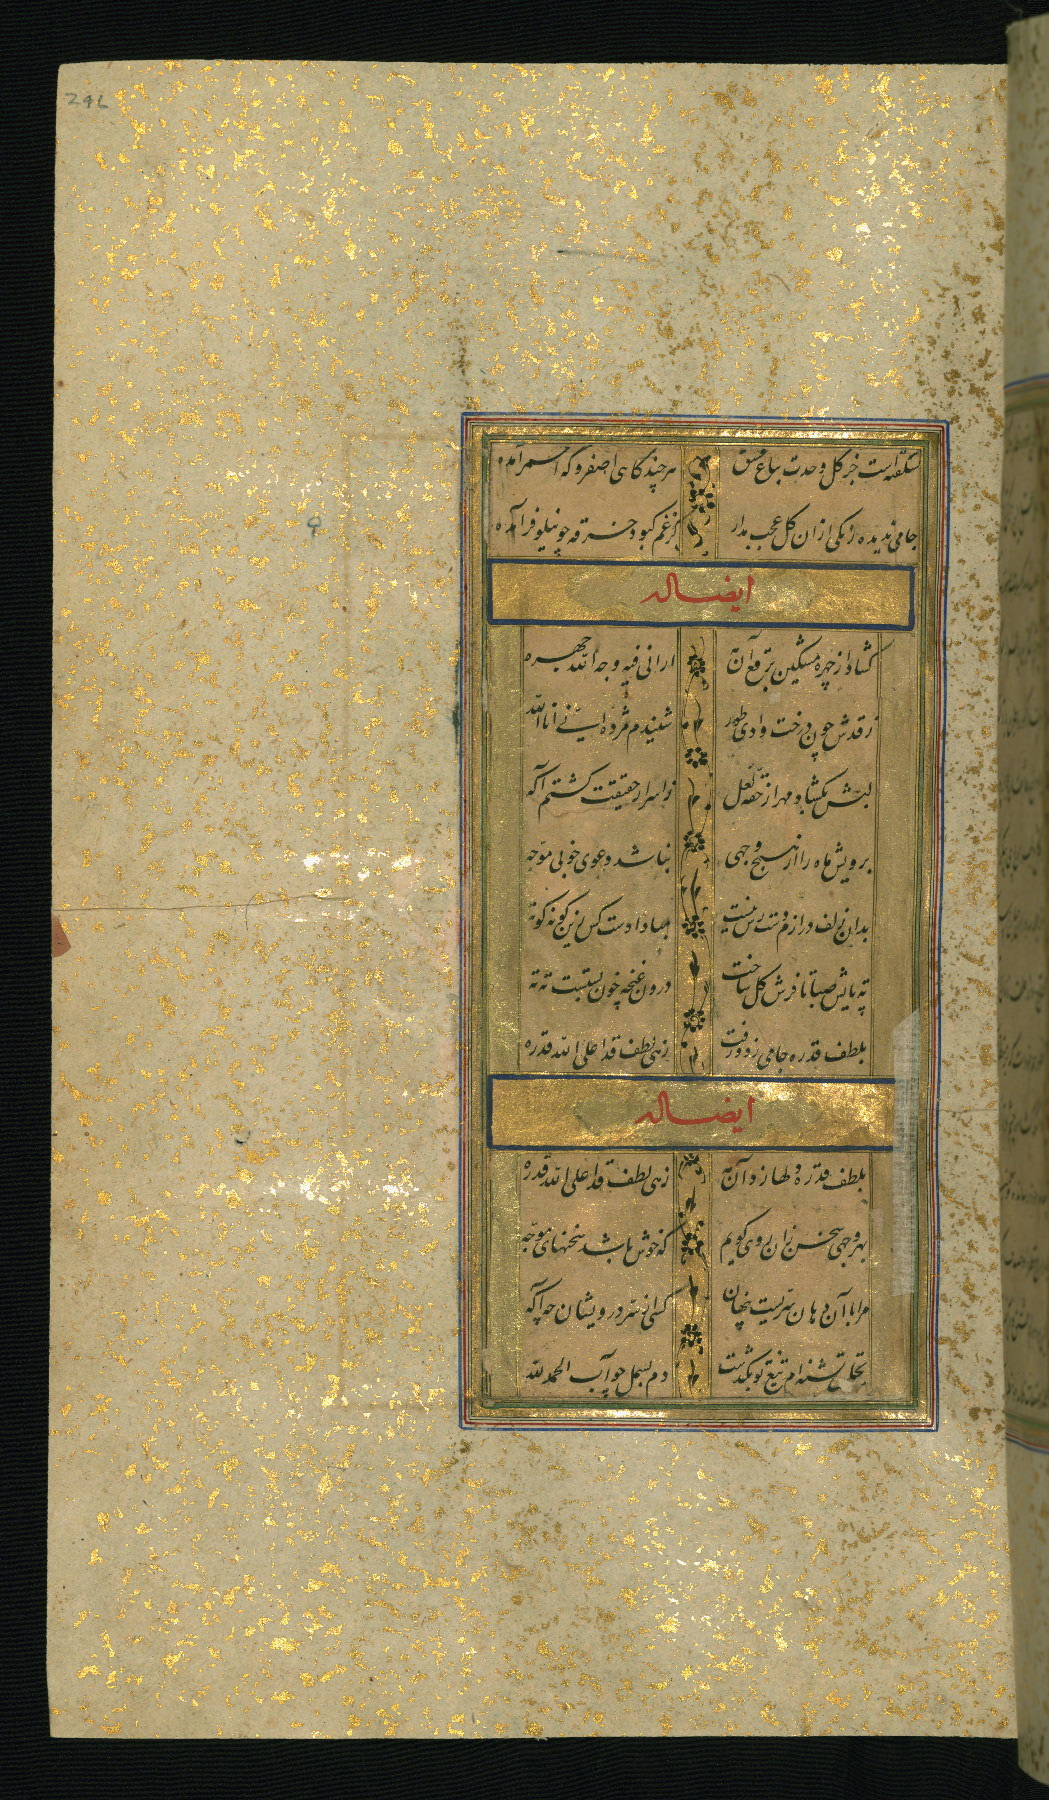 246
نشکفته است جز گل وحدت بباغ عشق هرچند گاهی اصفر و گه اسمر آمده
جامی ندیده رنگی ازان گل عجب مدار کز غم کبود خرقه چو نیلوفر آمده
ایضا له
گشاد از چهره مشکین برقع آن مه ارانی فیه وجه الله جهره
ز قدش چون درخت وادی طور شنیدم مژده انی انا الله
لبش بگشاد مهر از حقه لعل ز اسرار حقیقت گشتم آگه
برویش ماه را از هیچ وجهی نباشد دعوی خوبی موجه
بدان زلف درازم دست رس نیست مبادا دست کس زین گونه کوته
ته پایش صبا تا فرش گل ساخت درون غنچه خون بستست ته ته
بلطف قد ره جامی زد و رفت زهی لطف قد اعلی الله قدره
ایضا له
بلطف قد ره دلها زد آن مه زهی لطف قد اعلی الله قدره
بهر وجهی سخن زان روی گویم که خوش باشد سخنهای موجه
مرا با آن دهان سریست پنهان کسی از سر درویشان چه آگه
بحلق تشنه‌ام تیغ تو بگذشت دم بسمل چو آب الحمد لله